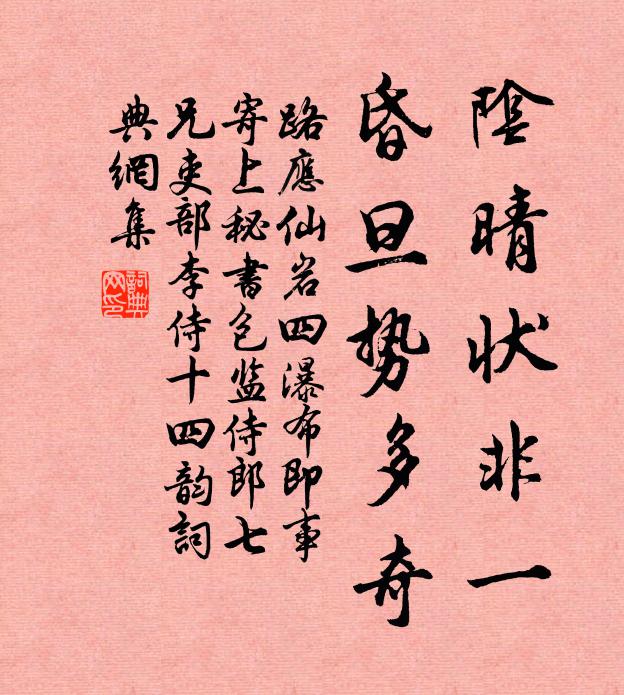 陰晴状非一
昏旦势多奇
路應仙岩四瀑布即事
寄上秘書包监侍郎七
兄吏部李侍十四韵詞
典網集
詞典
网印